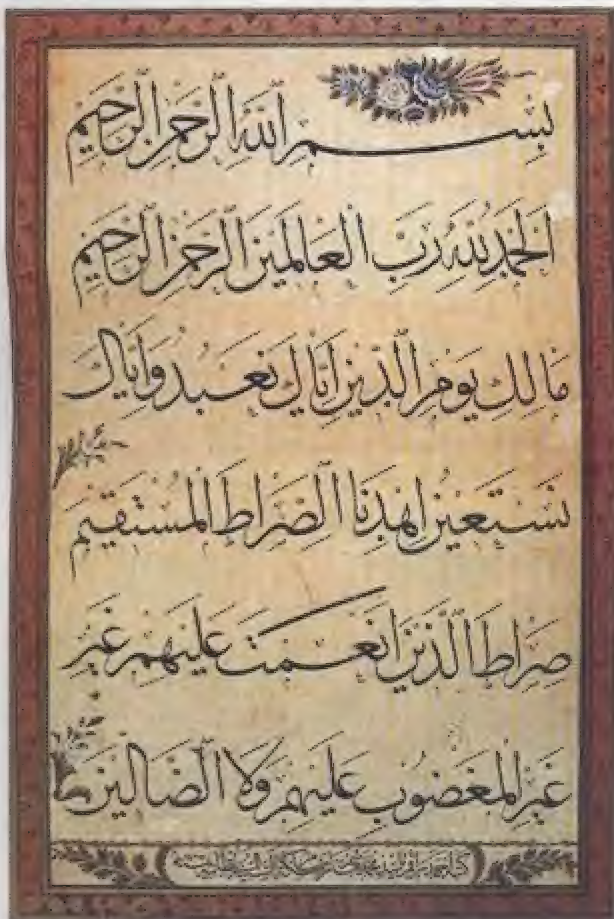 بِسْمِ اللهِ الرَّحْمٰنِ الرَّحِيْمِ
اَلْحَمْدُ لِلّٰهِ رَبِّ الْعَالَمِيْنَ الرَّحْمٰنِ الرَّحِيْمِ
مَالِكِ يَوْمِ الدِّيْنِ اِيَّاكَ نَعْبُدُ وَاِيَّاكَ
نَسْتَعِيْنُ اِهْدِنَا الصِّرَاطَ الْمُسْتَقِيْمَ
صِرَاطَ الَّذِيْنَ اَنْعَمْتَ عَلَيْهِمْ غَيْرِ
غَيْرِ الْمَغْضُوْبِ عَلَيْهِمْ وَلَا الضَّالِّيْنَ